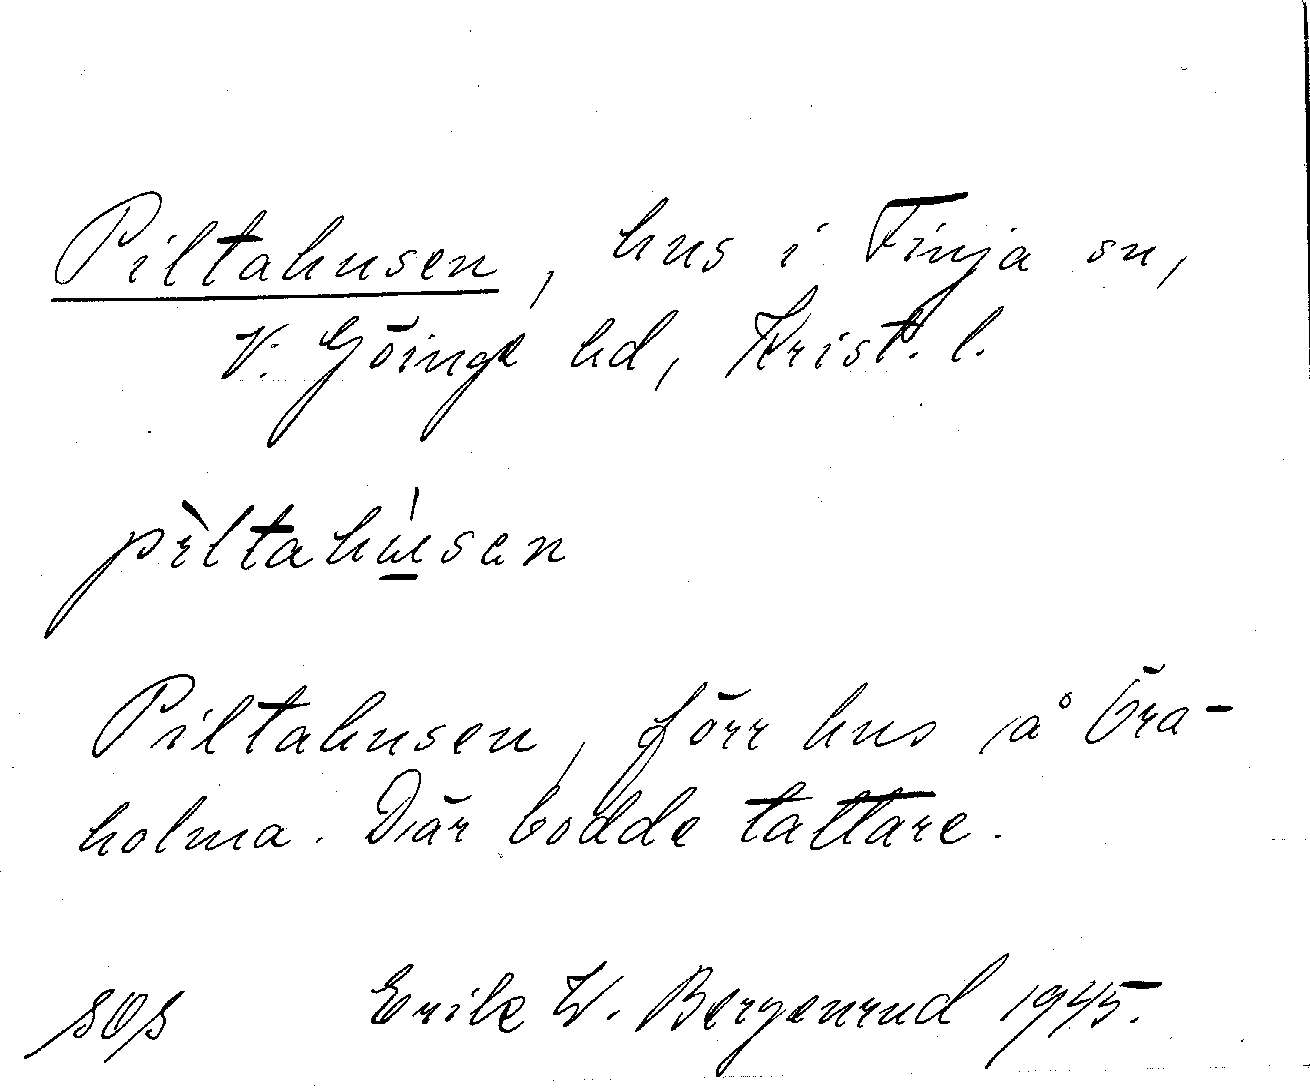 Piltahusen, hus i Finja sn,
V. Göinge hd, Krist. l.
pìltahú̱sen
Piltahusen, förr hus på Öra-
holma. Där bodde tattare.
SOS Erik W. Bergenrud 1945.